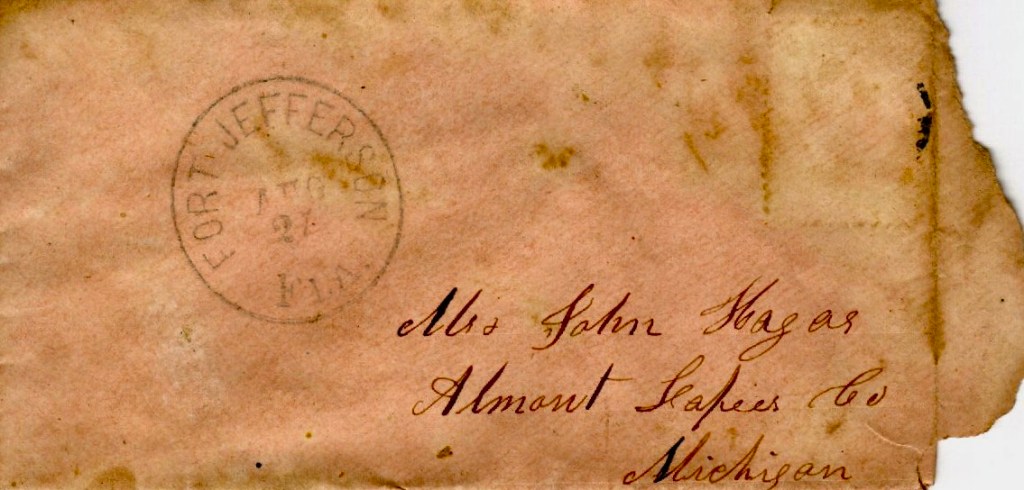 FORT JEFFERSON
AUG
FLA.
Mrs John Hagar
Almont Lapeer Co
Michigan